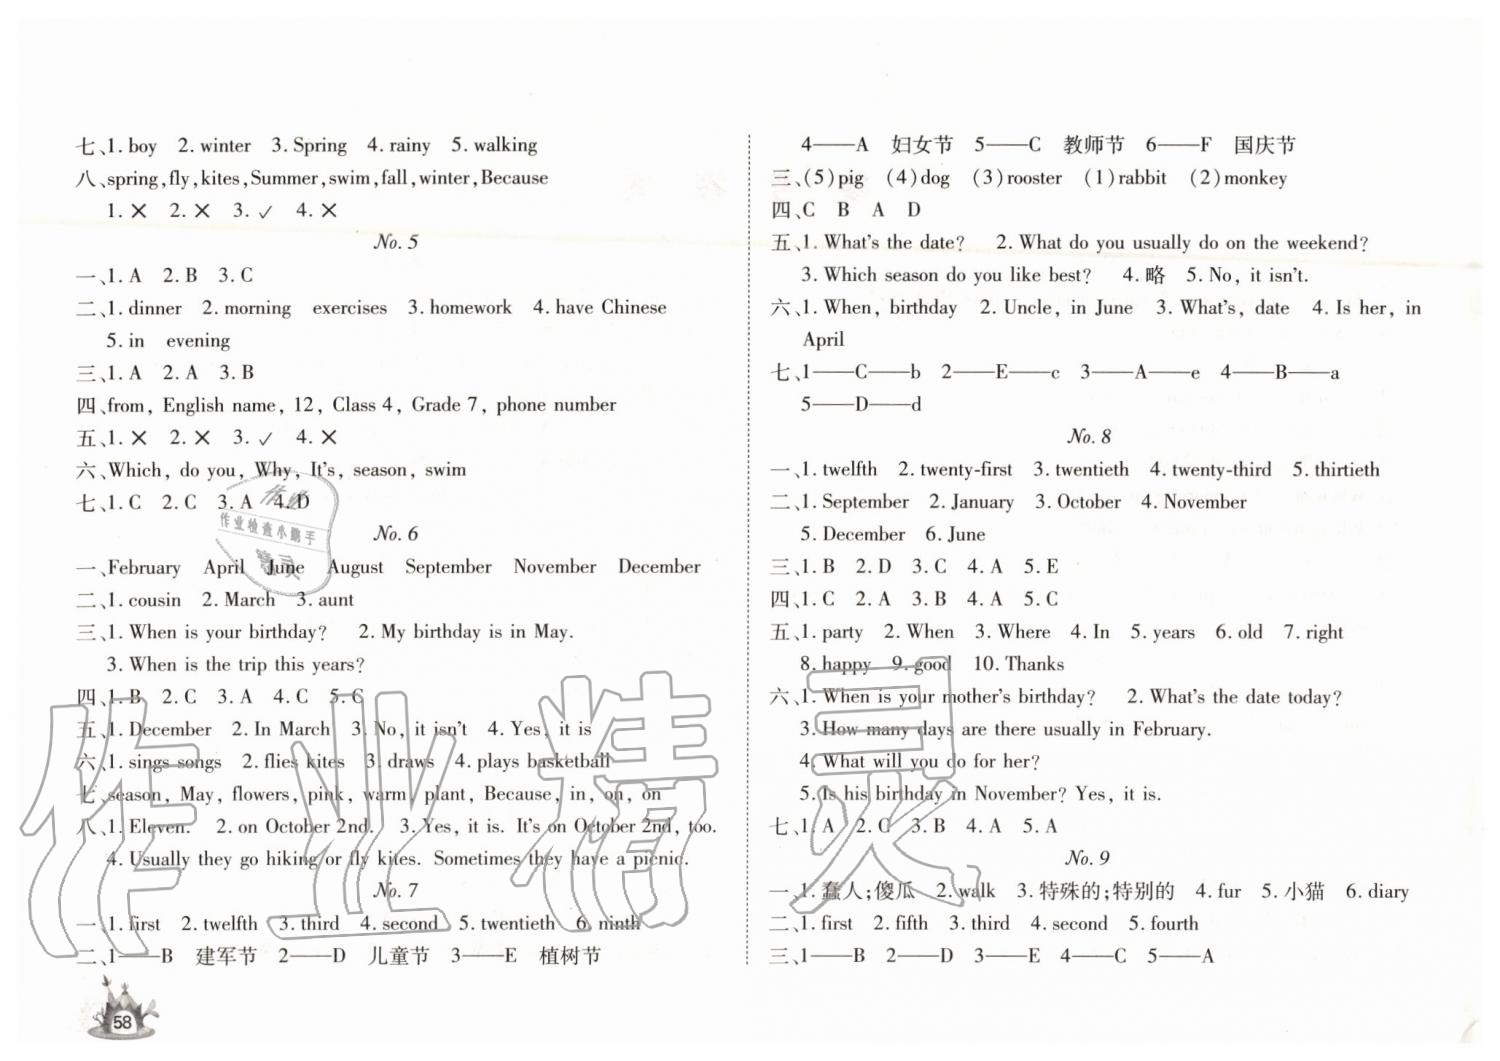 七、1. boy 2. winter 3. Spring 4. rainy 5. walking
八、spring, fly, kites, Summer, swim, fall, winter, Because
1. ✕ 2. ✕ 3. ✓ 4. ✕
No. 5
一、1. A 2. B 3. C
二、1. dinner 2. morning exercises 3. homework 4. have Chinese
5. in evening
三、1. A 2. A 3. B
四、from, English name, 12, Class 4, Grade 7, phone number
五、1. ✕ 2. ✕ 3. ✓ 4. ✕
六、Which, do you, Why, It's, season, swim
七、1. C 2. C 3. A 4. D
No. 6
一、February April June August September November December
二、1. cousin 2. March 3. aunt
三、1. When is your birthday? 2. My birthday is in May.
3. When is the trip this years?
四、1. B 2. C 3. A 4. C 5. C
五、1. December 2. In March 3. No, it isn't 4. Yes, it is
六、1. sings songs 2. flies kites 3. draws 4. plays basketball
七、season, May, flowers, pink, warm, plant, Because, in, on, on
八、1. Eleven. 2. on October 2nd. 3. Yes, it is. It's on October 2nd, too.
4. Usually they go hiking or fly kites. Sometimes they have a picnic.
No. 7
一、1. first 2. twelfth 3. third 4. second 5. twentieth 6. ninth
二、1——B 建军节 2——D 儿童节 3——E 植树节
58
4——A 妇女节 5——C 教师节 6——F 国庆节
三、(5)pig (4)dog (3)rooster (1)rabbit (2)monkey
四、C B A D
五、1. What's the date? 2. What do you usually do on the weekend?
3. Which season do you like best? 4. 略 5. No, it isn't.
六、1. When, birthday 2. Uncle, in June 3. What's, date 4. Is her, in
April
七、1——C——b 2——E——c 3——A——e 4——B——a
5——D——d
No. 8
一、1. twelfth 2. twenty-first 3. twentieth 4. twenty-third 5. thirtieth
二、1. September 2. January 3. October 4. November
5. December 6. June
三、1. B 2. D 3. C 4. A 5. E
四、1. C 2. A 3. B 4. A 5. C
五、1. party 2. When 3. Where 4. In 5. years 6. old 7. right
8. happy 9. good 10. Thanks
六、1. When is your mother's birthday? 2. What's the date today?
3. How many days are there usually in February.
4. What will you do for her?
5. Is his birthday in November? Yes, it is.
七、1. A 2. C 3. B 4. A 5. A
No. 9
一、1. 蠢人;傻瓜 2. walk 3. 特殊的;特别的 4. fur 5. 小猫 6. diary
二、1. first 2. fifth 3. third 4. second 5. fourth
三、1——B 2——D 3——E 4——C 5——A
作业精灵
作业检查小鹏手